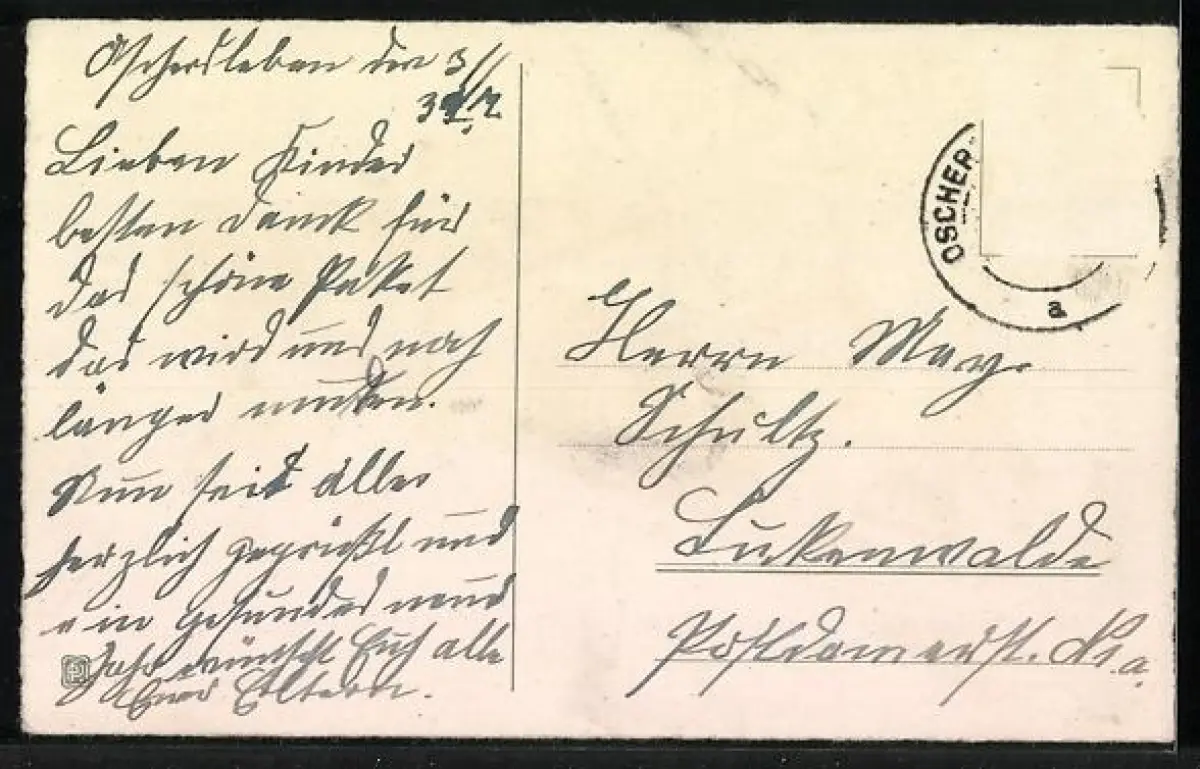 Oscherdleben den 3/1
Lieben Kinder
besten Dank für
das schöne Paket
das wird uns noch
länger
Nun seit alle
herzlich gegrüßt und
ein gesundes neues
Jahr wünscht Euch alle
Eure Eltern.
OSCHER
a
Herrn
Schultz.
Lukenwalde